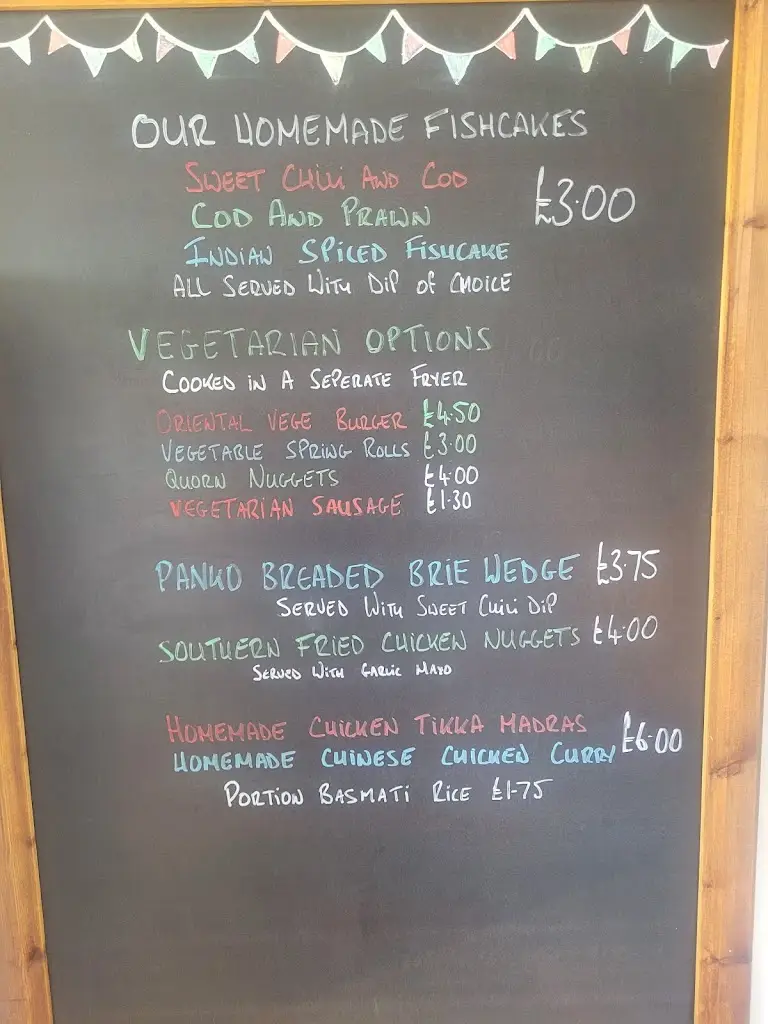 OUR HOMEMADE FISHCAKES
SWEET CHILI AND COD
£3.00
COD AND PRAWN
INDIAN SPICED FISHCAKE
ALL SERVED WITH DIP OF CHOICE
VEGETARIAN OPTIONS
COOKED IN A SEPERATE FRYER
ORIENTAL VEGE BURGER £4.50
VEGETABLE SPRING ROLLS £3.00
QUORN NUGGETS £4.00
VEGETARIAN SAUSAGE £1.30
PANKO BREADED BRIE WEDGE £3.75
SERVED WITH SWEET CHILI DIP
SOUTHERN FRIED CHICKEN NUGGETS £4.00
SERVED WITH GARLIC MAYO
HOMEMADE CHICKEN TIKKA MADRAS
HOMEMADE CHINESE CHICKEN CURRY £6.00
PORTION BASMATI RICE £1.75